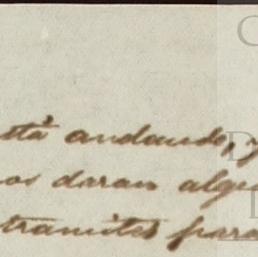 está andando, y
nos daran algu
tramites para